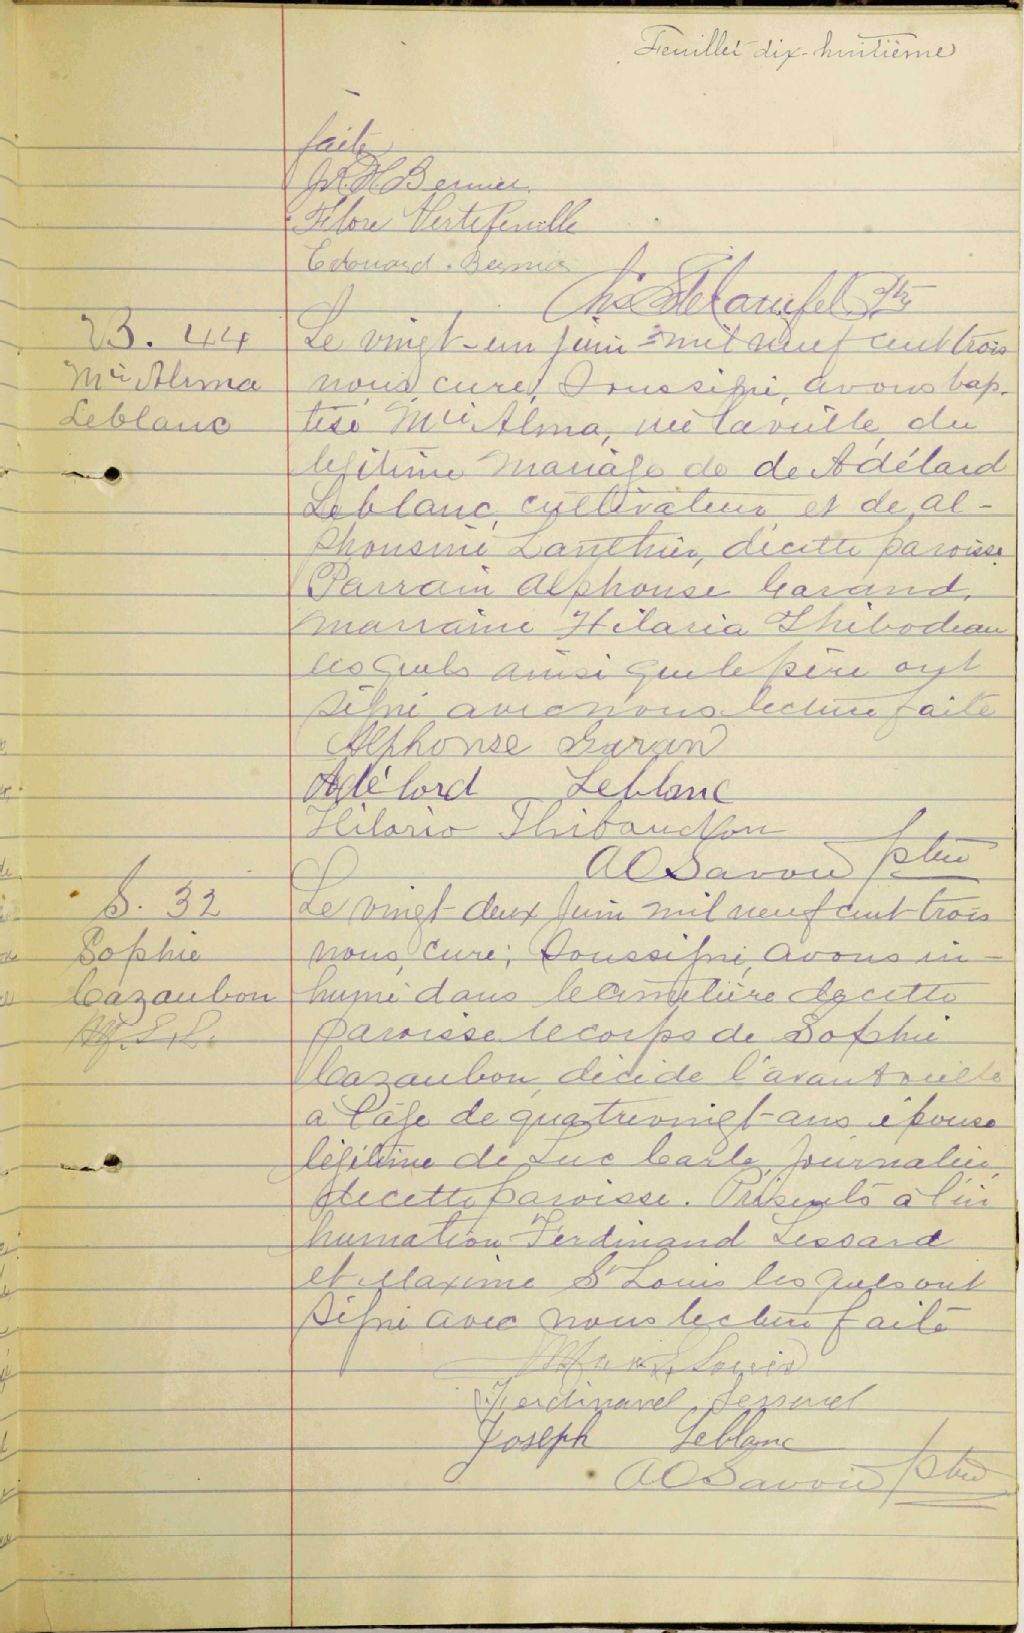 Feuillet dix-huitième
faite
J.A.H. Bernier
Flore Vertefeuille
Edouard. Bernier
Ptre
B. 44
Mie Alma
Leblanc
Le vingt-un juin mil neuf cent trois
nous, curé, soussigné, avons bap-
tisé Mie Alma, née la veille, du
légitime mariage de de Adélard
Leblanc, cultivateur et de Al-
phonsine Lanthier, de cette paroisse.
Parrain Alphonse Garand,
marraine Hilaria Thibodeau
lesquels ainsi que le père ont
signé avec nous lecture faite
Alphonse Garan
Adélord Leblanc
Hilario
A O Savoie ptre
S. 32
Sophie
Cazaubon
Le vingt-deux juin mil neuf cent trois
nous, curé, soussigné, avons in-
humé dans le cimetière de cette
paroisse le corps de Sophie
Cazaubon, décédé l'avant veille
a l'âge de quatrevingt-ans épouse
légitime de Luc Carle, journalier,
de cette paroisse. Présents à l'in
humation Ferdinand Lessard
et Maxime St Louis lesquels ont
signé avec nous lecture faite
Max St Louis
Ferdinand Lessard
Joseph Leblanc
A O Savoie ptre